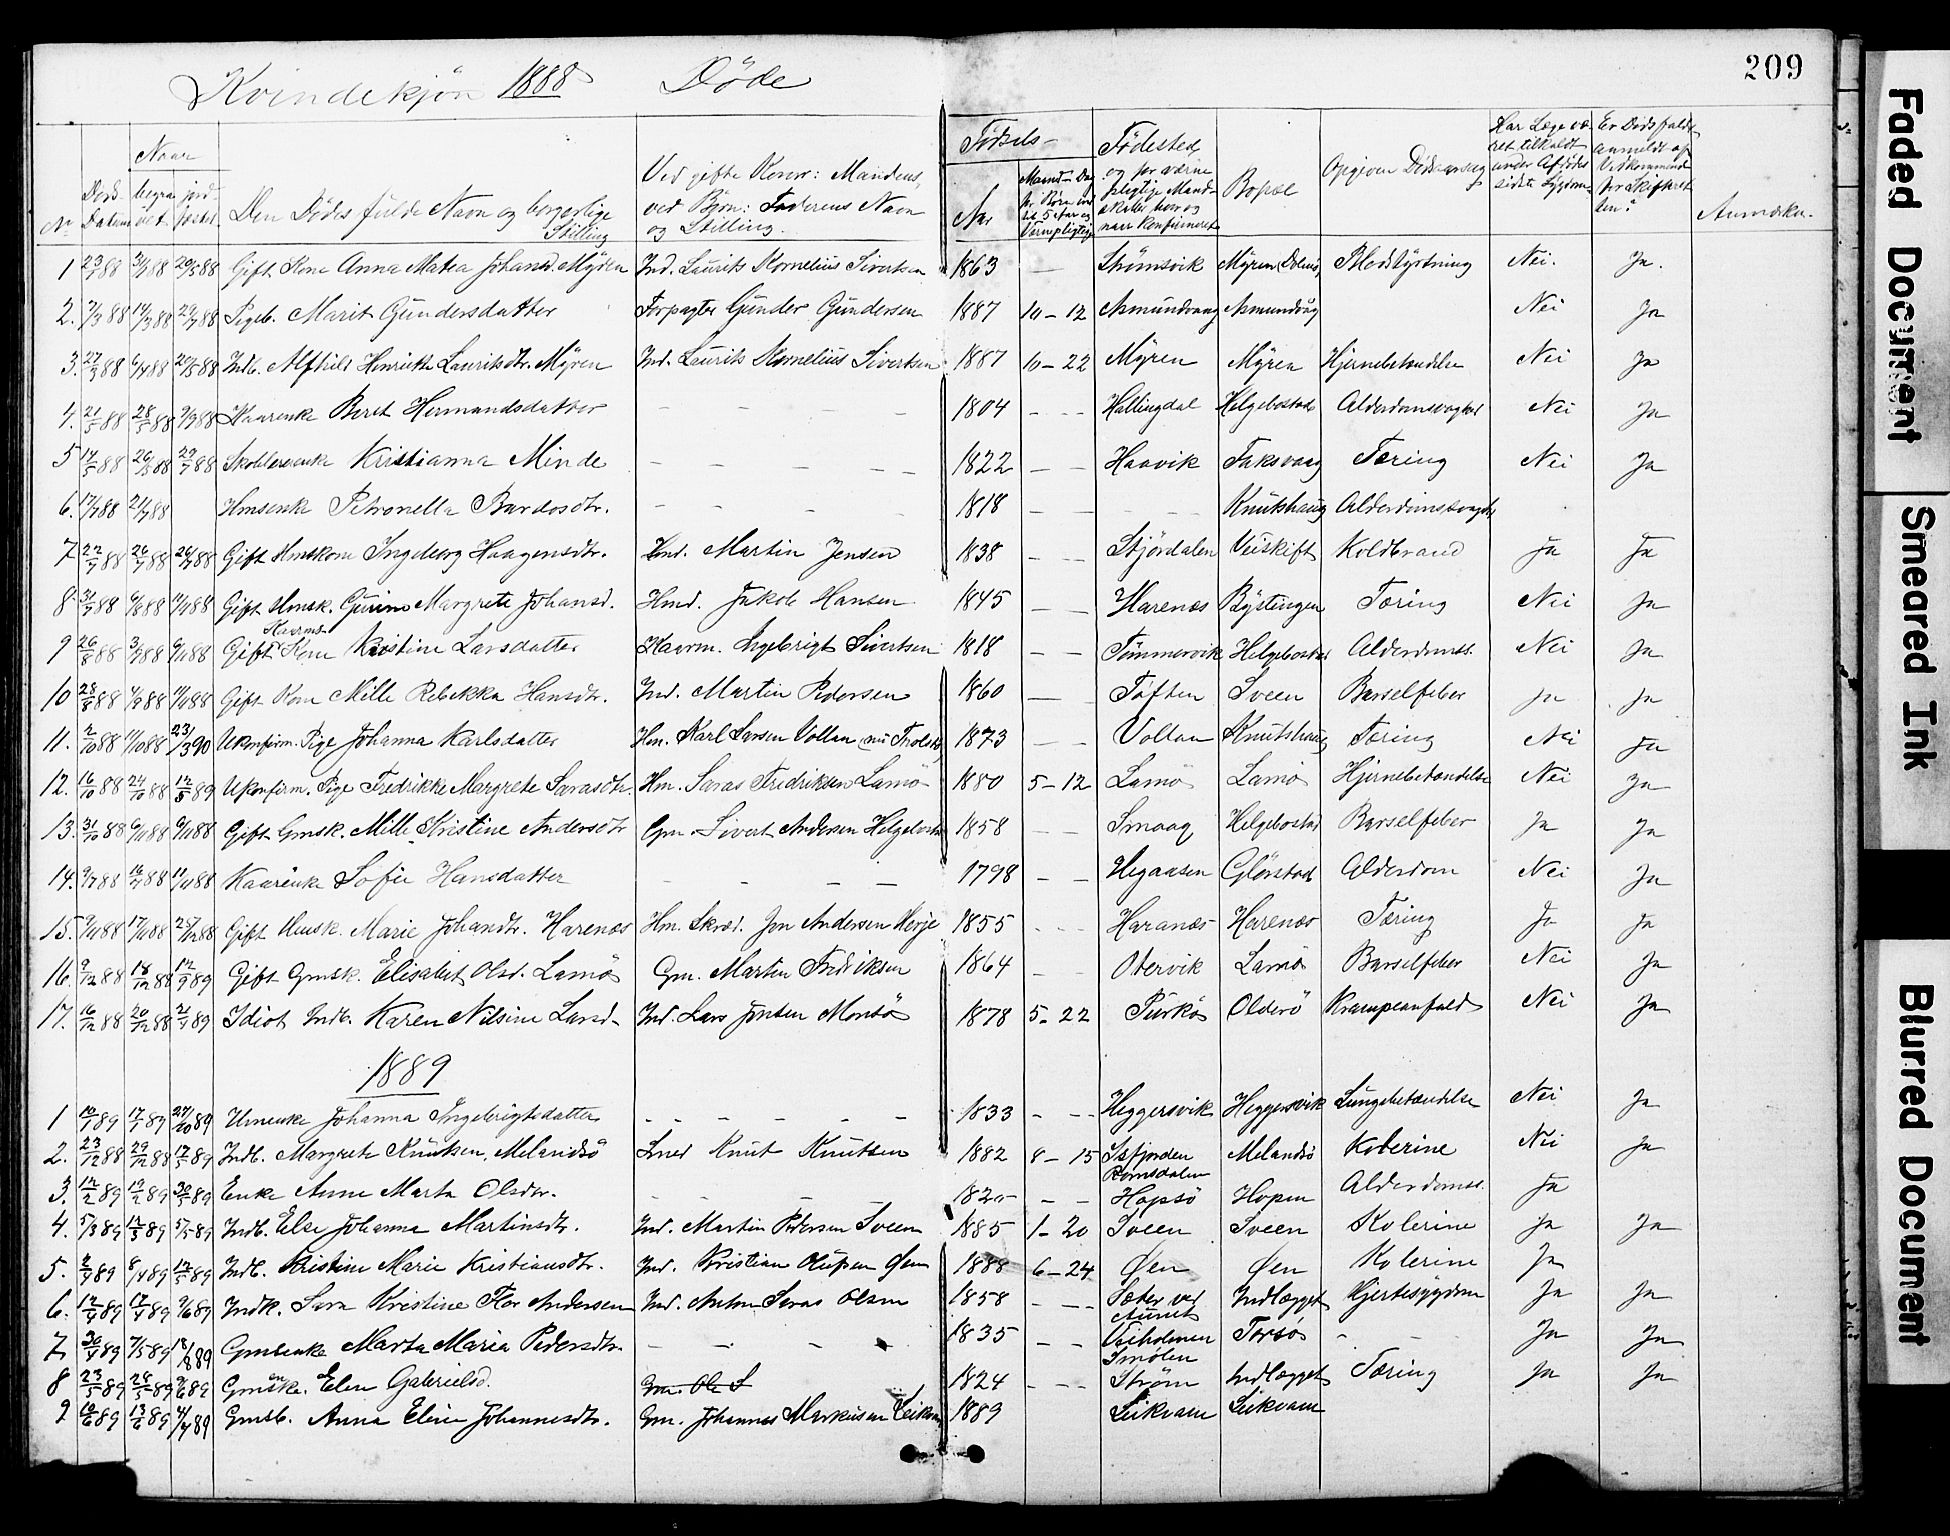 209
Kvindekjøn 1888 Døde
Naar
Fødsels-
No
Døds Datum
begra vet
jord fæstet
Den Dødes fulde Navn og borgerlige Stilling
Ved gifte Koner: Mandens, ved Børn: Faderens Navn og Stilling.
Aar
Fødested og for værnepligtige Mandskaber, hvor og naar konfirmeret
Bopæl
Opgiven Dødsaarsag
Har Læge været tilkaldt under Afdødes sidste Sygdom
Er Dødsfaldet anmeldt af Vedkommende for Skifteretten?
Anmærkn.
1 88 88 88 Gift Kone Anna Matea Johansd. Myren Ind. Laurits Kornelius Sivertsen 1863 — Strømsvik Myren Blodstyrtning Nei. Ja.
2. 7/3 88 14/3 88 29/7 88 Pigeb. Marit Gundersdatter Forpagter Gunder Gundersen 1887 10-12 Asmundvaag Asmundvåg Nei Ja
3. 27/3 88 6/4 88 20/5 88 Indb. Alfhild Henrikke Lauritsdtr. Myren Ind. Laurits Kornelius Sivertsen 1887 10-22 Myren Myren Hjernebetændelse Nei Ja
4. 21/5 88 28/5 88 9/9 88 Kaarenke Beret Hermandsdatter - - - - 1804 - - - Hallingdal Helgebostad Alderdomssvaghed Nei Ja
5 14/5 88 26/5 88 29/7 88 Skolelærerenke Kristianna Minde - - - - 1822 - - Haavik Faksvaag Tæring Nei Ja
6. 17/7 88 21/7 88 Hmsenke Petronella Bardosdtr. - - - - 1818 - - - - - Knutshaug Alderdomssvaghed
7 22/7 88 26/7 88 88 Gift Hmskone Ingeborg Haagensdtr. Hmd. Martin Jensen 1838 - - Stjørdalen Veiskift Koldbrand Ja Ja
8 31/7 88 6/8 88 11/11 88 Gift Hmsk. Gurine Margrete Johansd. Hmd. Jakob Hansen 1845 - - Harenæs Bystingen Tæring Nei Ja
9 26/8 88 3/9 88 9/11 88 Gift Kaarms Kone Kristine Larsdatter Kaarm. Ingebrigt Sivertsen 1818 - - Tømmervik Helgebostad Alderdomss. Nei Ja
10 28/8 88 4/9 88 11/11 88 Gift Kone Mille Rebekka Hansdtr. Ind. Martin Pedersen 1860 — Tøften Sveen Barselfeber Ja Ja
11. 2/10 88 11/10 88 23/3 90 Ukonfirm. Pige Johanna Karlsdatter Hm. Karl Larsen Vollan 1873 - - Vollan Knutshaug Tæring Nei Ja
12. 16/10 88 24/10 88 12/5 89 Ukonfirm. Pige Fredrikke Margrete Sarasdtr. Hm. Saras Fredriksen Lamø 1880 5-12 Lamø Lamø Hjernebetændelse Nei Ja
13. 31/10 88 6/11 88 9/11 88 Gift Gmsk. Mille Kristine Andersdtr Gm. Sivert Andersen Helgebostad 1858 - - Smaag Helgebostad Barselfeber Ja Ja
14. 9/7 88 16/7 88 11/11 88 Kaarenke Sofie Hansdatter - - - - 1798 - - Hegaasen Glørstad Alderdom Nei Ja
15. 9/11 88 17/11 88 88 Gift Hmsk. Marie Johandtr. Harenæs Hm. Skræd. Jon Andersen Herje 1855 - - - Haranæs Harenæs Tæring Ja Ja
16. 9/12 88 18/12 88 12/9 89 Gift Gmsk. Elisabet Olsd. Lamø Gm. Martin Fredriksen 1864 - - Odervik Lamø Barselfeber Nei Ja
17. 16/12 88 20/12 88 21/7 89 Idiot Indb. Karen Nilsine Larsd- Ind. Lars Jonsen Monsø 1878 5-22 Purkø Olderø Krampeanfald Nei Ja
1889
1 89 89 27/10 89 Hmenke Johanna Ingebrigtsdatter - - - - - 1833 - - - Heggersvik Heggersvik Lungebetændelse Nei Ja
2. 23/12 88 29/12 88 12/5 89 Indb. Margrete Knutsen, Melandsø Smed Knut Knutsen 1882 8-15 Isfjorden Romsdalen Melandsø Kolerine Nei Ja
3. 12/2 89 19/2 89 30/5 89 Enke Anne Marta Olsdtr. - - - - - - Hopsø Hopen Alderdomss. Ja
4. 5/3 89 12/3 89 5/5 89 Indb. Else Johanna Martinsdtr. Ind. Martin Pedersen Sveen 1885 1-20 Sveen Sveen Kolerine Ja Ja
5. 2/4 89 8/4 89 12/5 89 Indb. Kristine Marie Kristiansdtr. Ind. Kristian Olufsen Øen 1888 6-24 Øen Øen Kolerine Ja
6. 12/4 89 17/4 89 9/6 89 Indk. Sara Kristine Flor Andersen Ind. Anton Saras Olsen 1858 - - - Sæter ved Aunet Indlægget Hjertesygdom Ja Ja
7 30/4 89 7/5 89 18/8 89 Gmsenke Marta Maria Pedersdtr. - - - 1835 - - Veiholmen Smølen Torsø - - Ja Ja
8 23/5 89 28/5 89 9/6 89 Gmsenke. Elen Gabrielsd. Gm. Ole S 1824 - - - Strøm Indlægget Tæring Ja Ja
9 10/6 89 13/6 89 4/7 89 Gmsb. Anna Eline Johannesdtr. Gm. Johannes Markussen Leikvam 1889 Leikvam Leikvam
Faded Document
Smeared Ink
Blurred Document